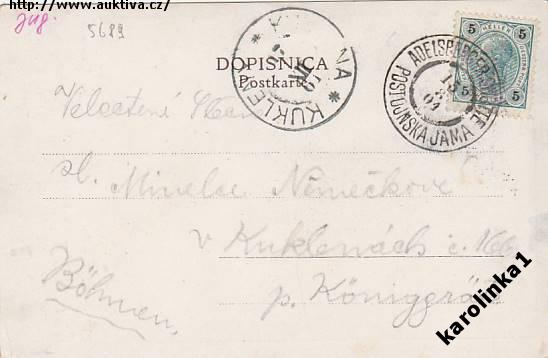 http://www.auktiva.cz/
jug.
5689
5 HELLER 5
5 5
DOPISNICA
Postkarte
KUKLENA * KUKLENY *
ADELSBERGER GROTTE
POSTOJNSKA JAMA
Velectěná Slečna
sl. Minelce Němečkové
v Kuklenách č. 166
p. Königgrätz
Böhmen.
karolinka1